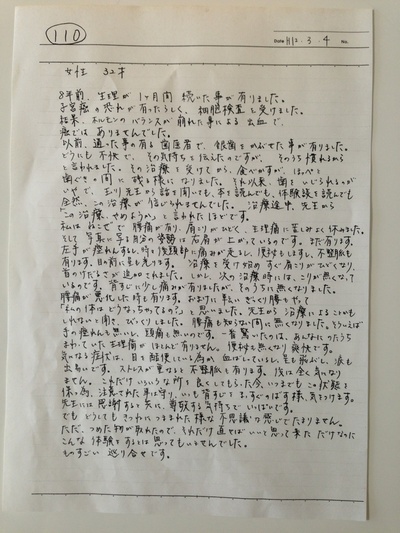 110
Date H12・3・4 No.
女性 32才
8年前、生理が1ヶ月間続いた事が有りました。
子宮癌の恐れが有ったらしく、細胞検査を受けました。
結果、ホルモンのバランスが崩れた事による出血で、
癌では ありませんでした。
以前、通った事の有る歯医者で、銀歯をかぶせた事が有りました。
どうにも不快で、その気持ちを伝えたのですが、そのうち慣れるから
と言われました。その治療を受けてから、食べかすが、はぐきと
歯ぐきの間に残る様になりました。それ以来、歯をいじられるのが
いやで、玉川先生から話を聞いても、本を読んでも、体験談を読んでも
全然、この治療が信じられませんでした。治療途中、先生から
「この治療、やめようか」と言われたほどです。
私はねこぜで腰痛が有り、肩こりがひどく、生理痛に苦しみよく休みました。
そして写真に写る自分の姿勢は右肩が上がっているのです。まだ有ります。
左手が疲れんすし、時々後頭部に痛みが走るし、便秘もしますし、不整脈も
有ります。目の前に星も見えます。 治療を受け始めすぐ肩こりがひどくなり、
首のけだるさが進められました。しかし、次の治療時には、こりが無くなっ
ているのです。背すじに少し痛みが有りましたが、そのうちに無くなりました。
腰痛が悪化した時も有ります。おまけに軽いぎっくり腰もやって
「私の体はどうなっちゃうの?」と思いました。先生から治療によるこりかも
しれないと聞き、びっくりしました。腰痛も知らない間に無くなりました。そういえば
手の疲れんも無いし、頭痛も無いのです。一番驚いたのは、あんなにのたうち
まわっていた生理痛がほとんど有りません。便秘も無くなり爽快です。
気になる症状は、目を酷使している為か血ばしっているし、星も飛ぶし、涙も
出易いです。ストレスが重なると不整脈も有ります。浅は全く気になり
ません。これだけいろいろな所を良くしてもらった今、いつまでもこの状態を
保つ為、注意された事は守り、いつも背すじをまっすぐのばす様、気をつけます。
先生には感謝すると共に、尊敬する気持ちでいっぱいです。
でもどうしてもきつねにつままれた様な不思議な感じでたまりません。
ただ、つめた物が取れたので、それだけ直せばいいと思って来ただけなのに
こんな体験をするとは思ってもいませんでした。
ものすごい巡り合せです。